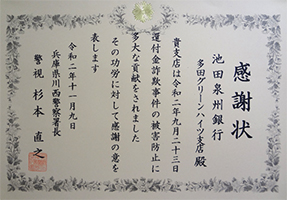 感謝状
池田泉州銀行
多田グリーンハイツ支店殿
貴支店は令和二年九月二十三日
還付金詐欺事件の被害防止に
多大な貢献をされました
その功労に対して感謝の意を
表します
令和二年十一月九日
兵庫県川西警察署長
警視 杉本直之